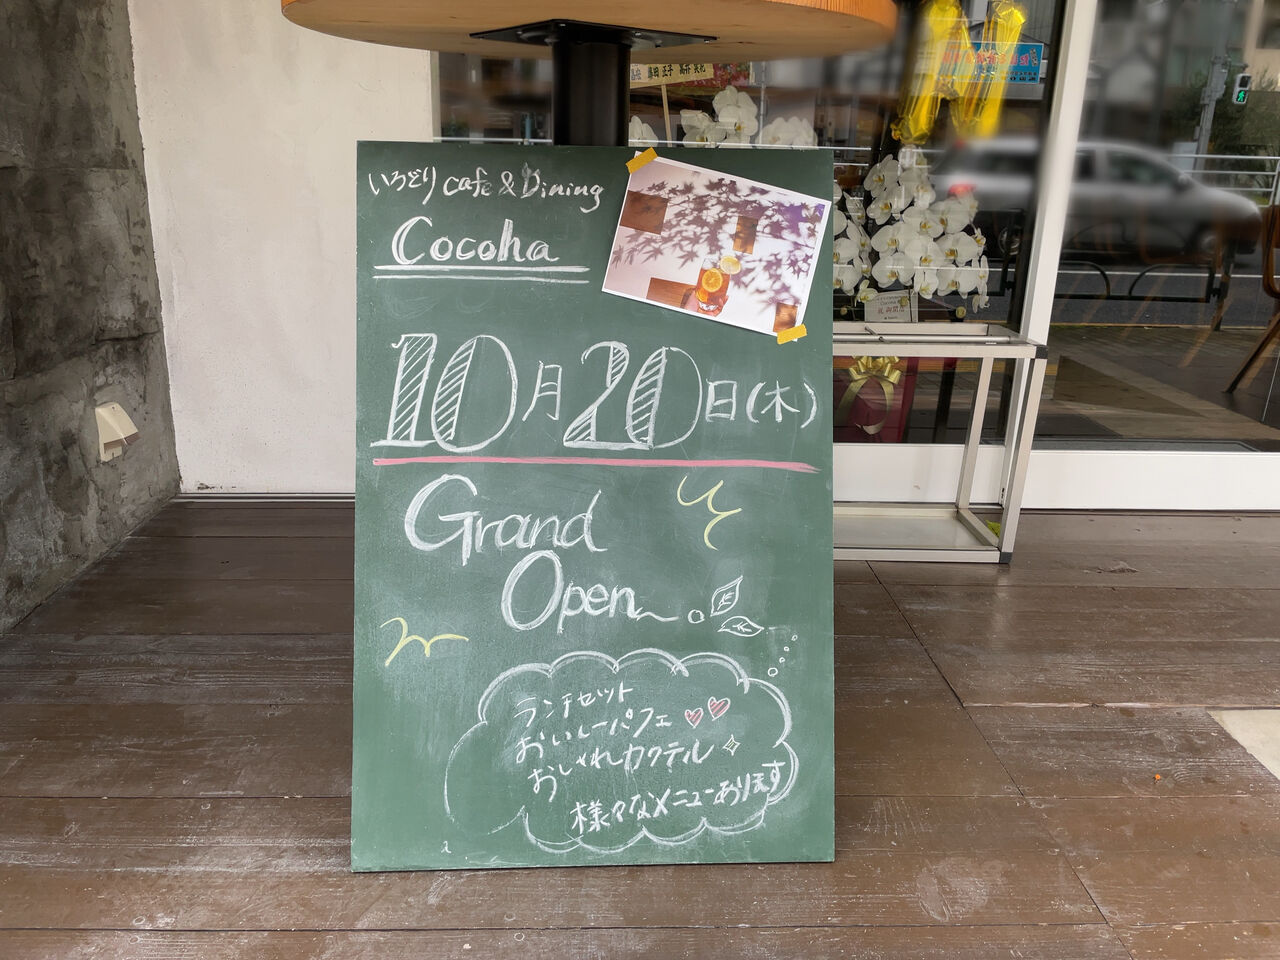 いろどり cafe & Dining
Cocoha
10月20日(木)
Grand
Open
ランチセット
おいしーパフェ
おしゃれカクテル
様々なメニューあります